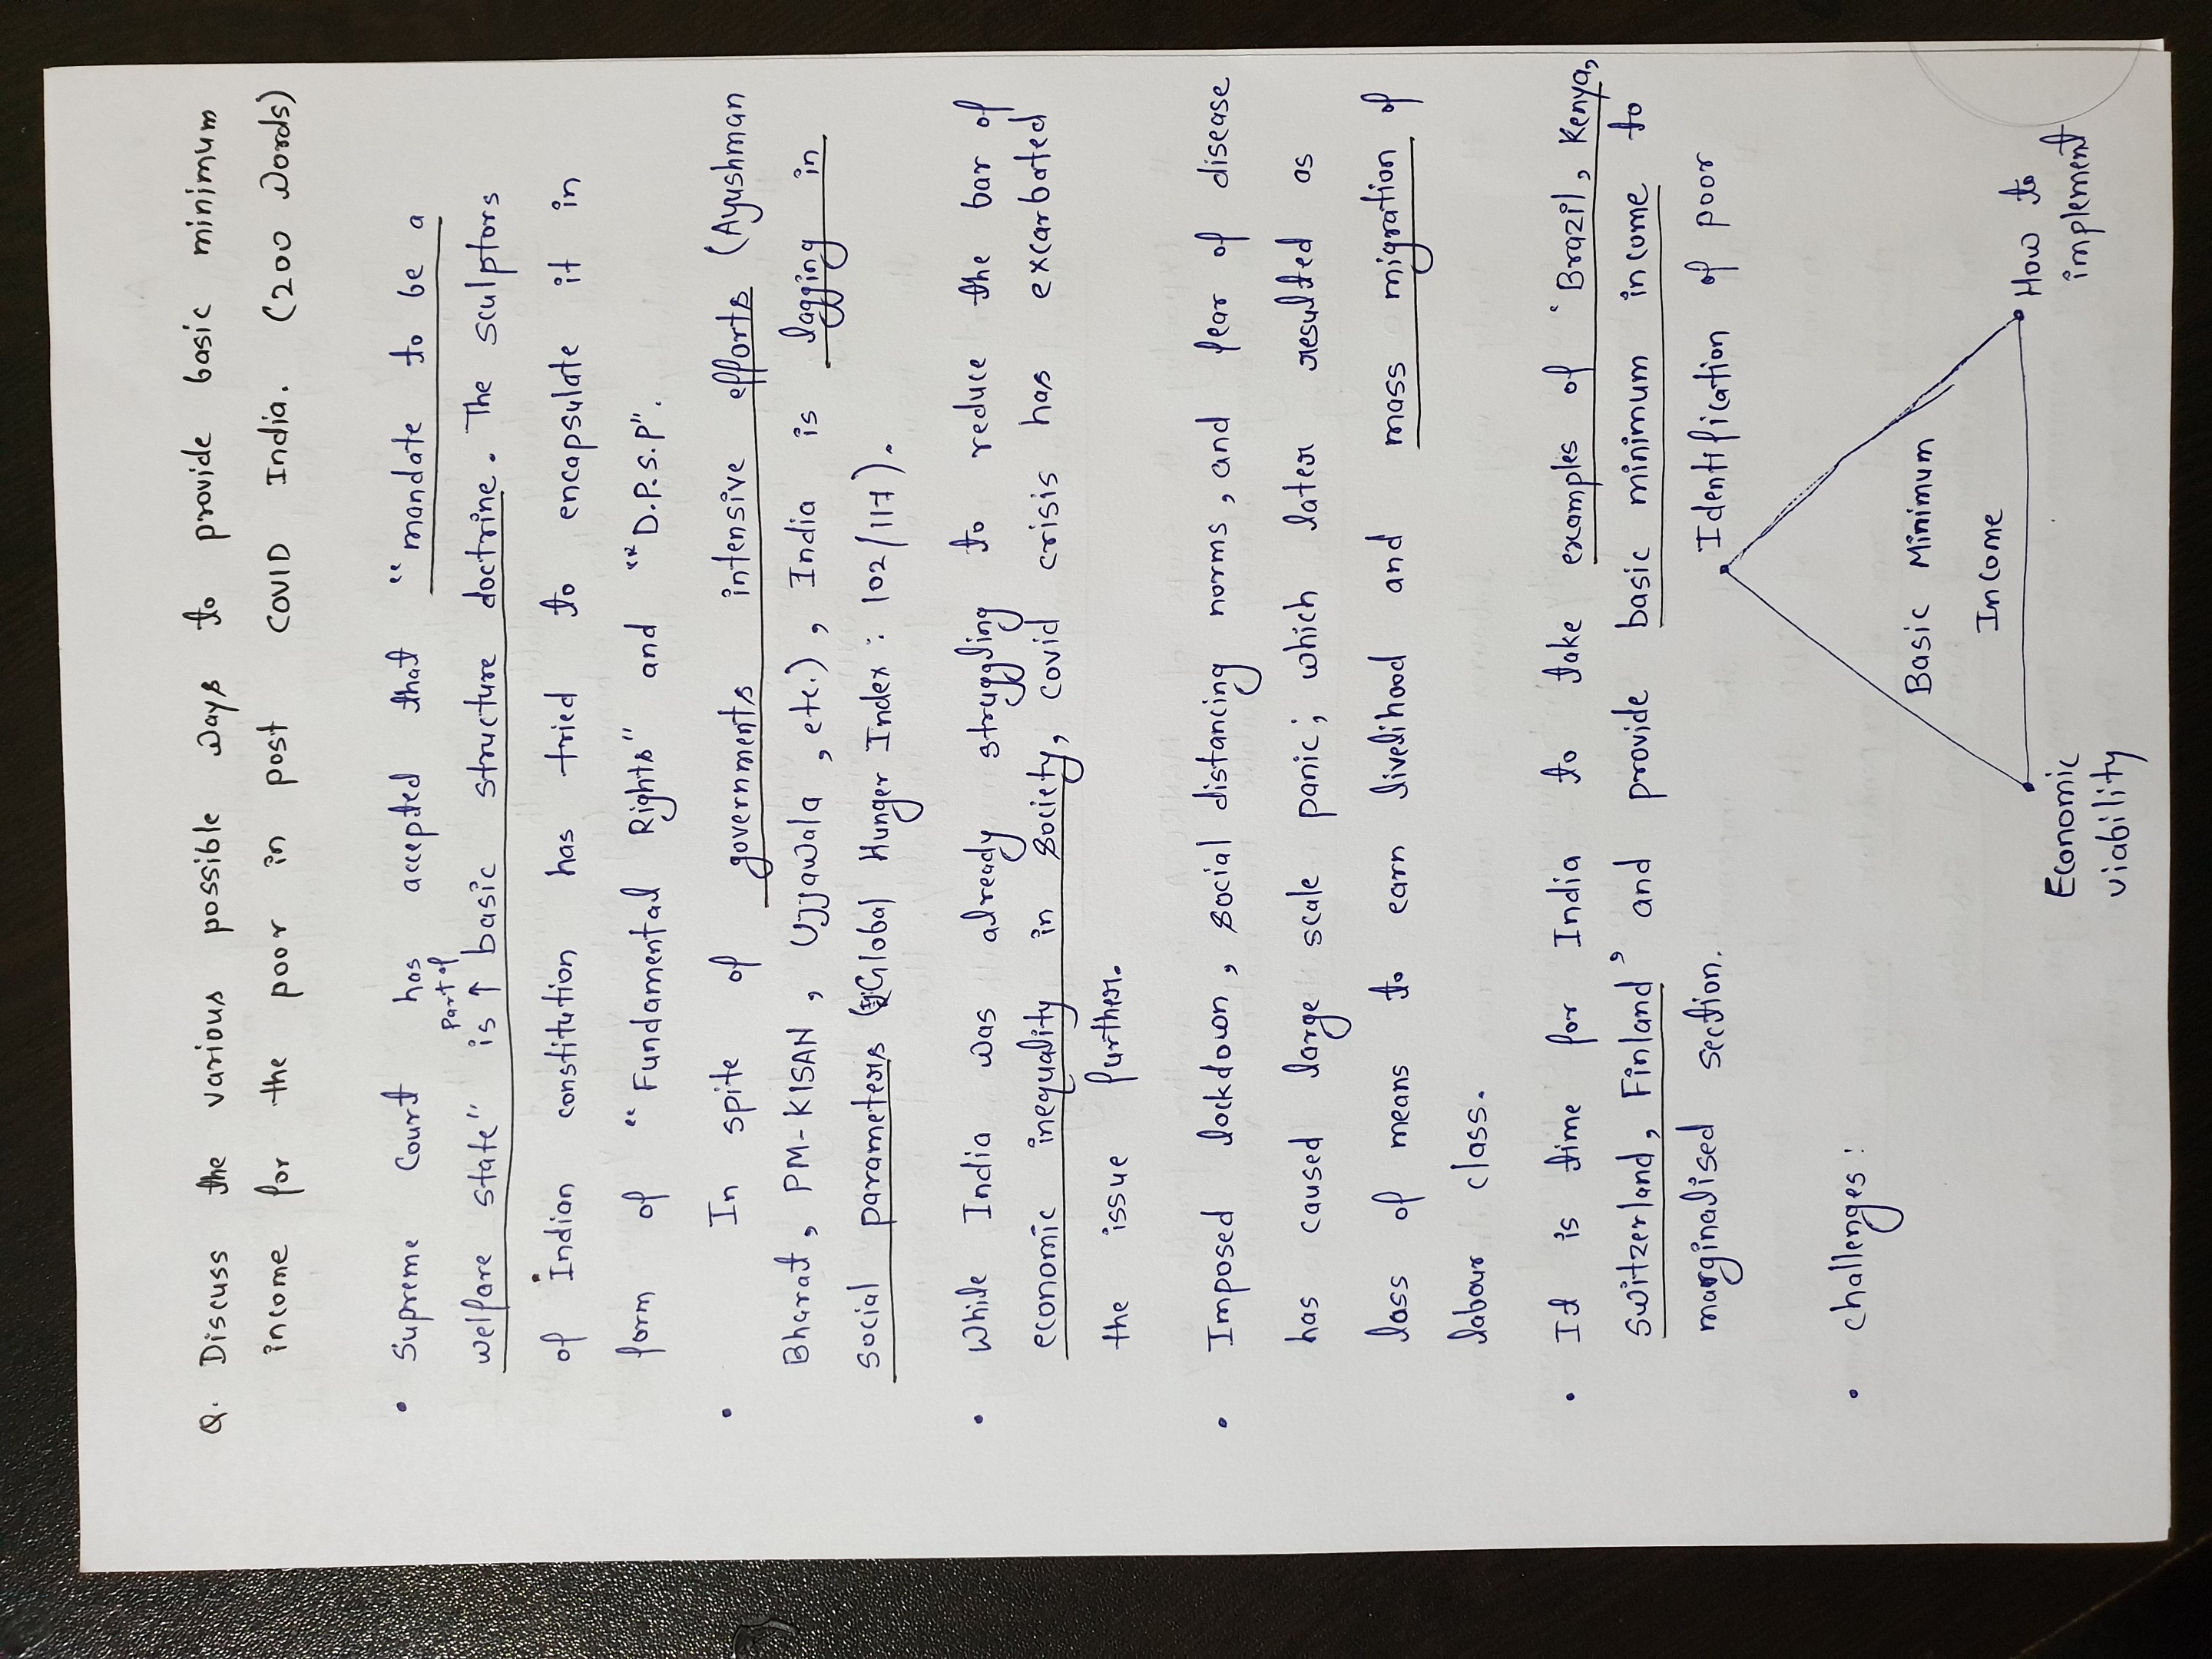 Q. Discuss the various possible ways to provide basic minimum
income for the poor in post COVID India. (200 words)
• Supreme Court has accepted that "mandate to be a
welfare state" is part of basic structure doctrine. The sculptors
of Indian constitution has tried to encapsulate it in
form of "Fundamental Rights" and "D.P.S.P".
• In spite of governments intensive efforts (Ayushman
Bharat, PM-KISAN, Ujjawala, etc.), India is lagging in
social parameters (Global Hunger Index: 102/117).
• While India was already struggling to reduce the bar of
economic inequality in society, covid crisis has excarbated
the issue further.
• Imposed lockdown, social distancing norms, and fear of disease
has caused large scale panic; which later resulted as
loss of means to earn livelihood and mass migration of
labour class.
• It is time for India to take examples of 'Brazil, Kenya,
Switzerland, Finland' and provide basic minimum income to
marginalised section.
• Challenges:
Identification of poor
Basic Minimum
Income
Economic
viability
How to
implement